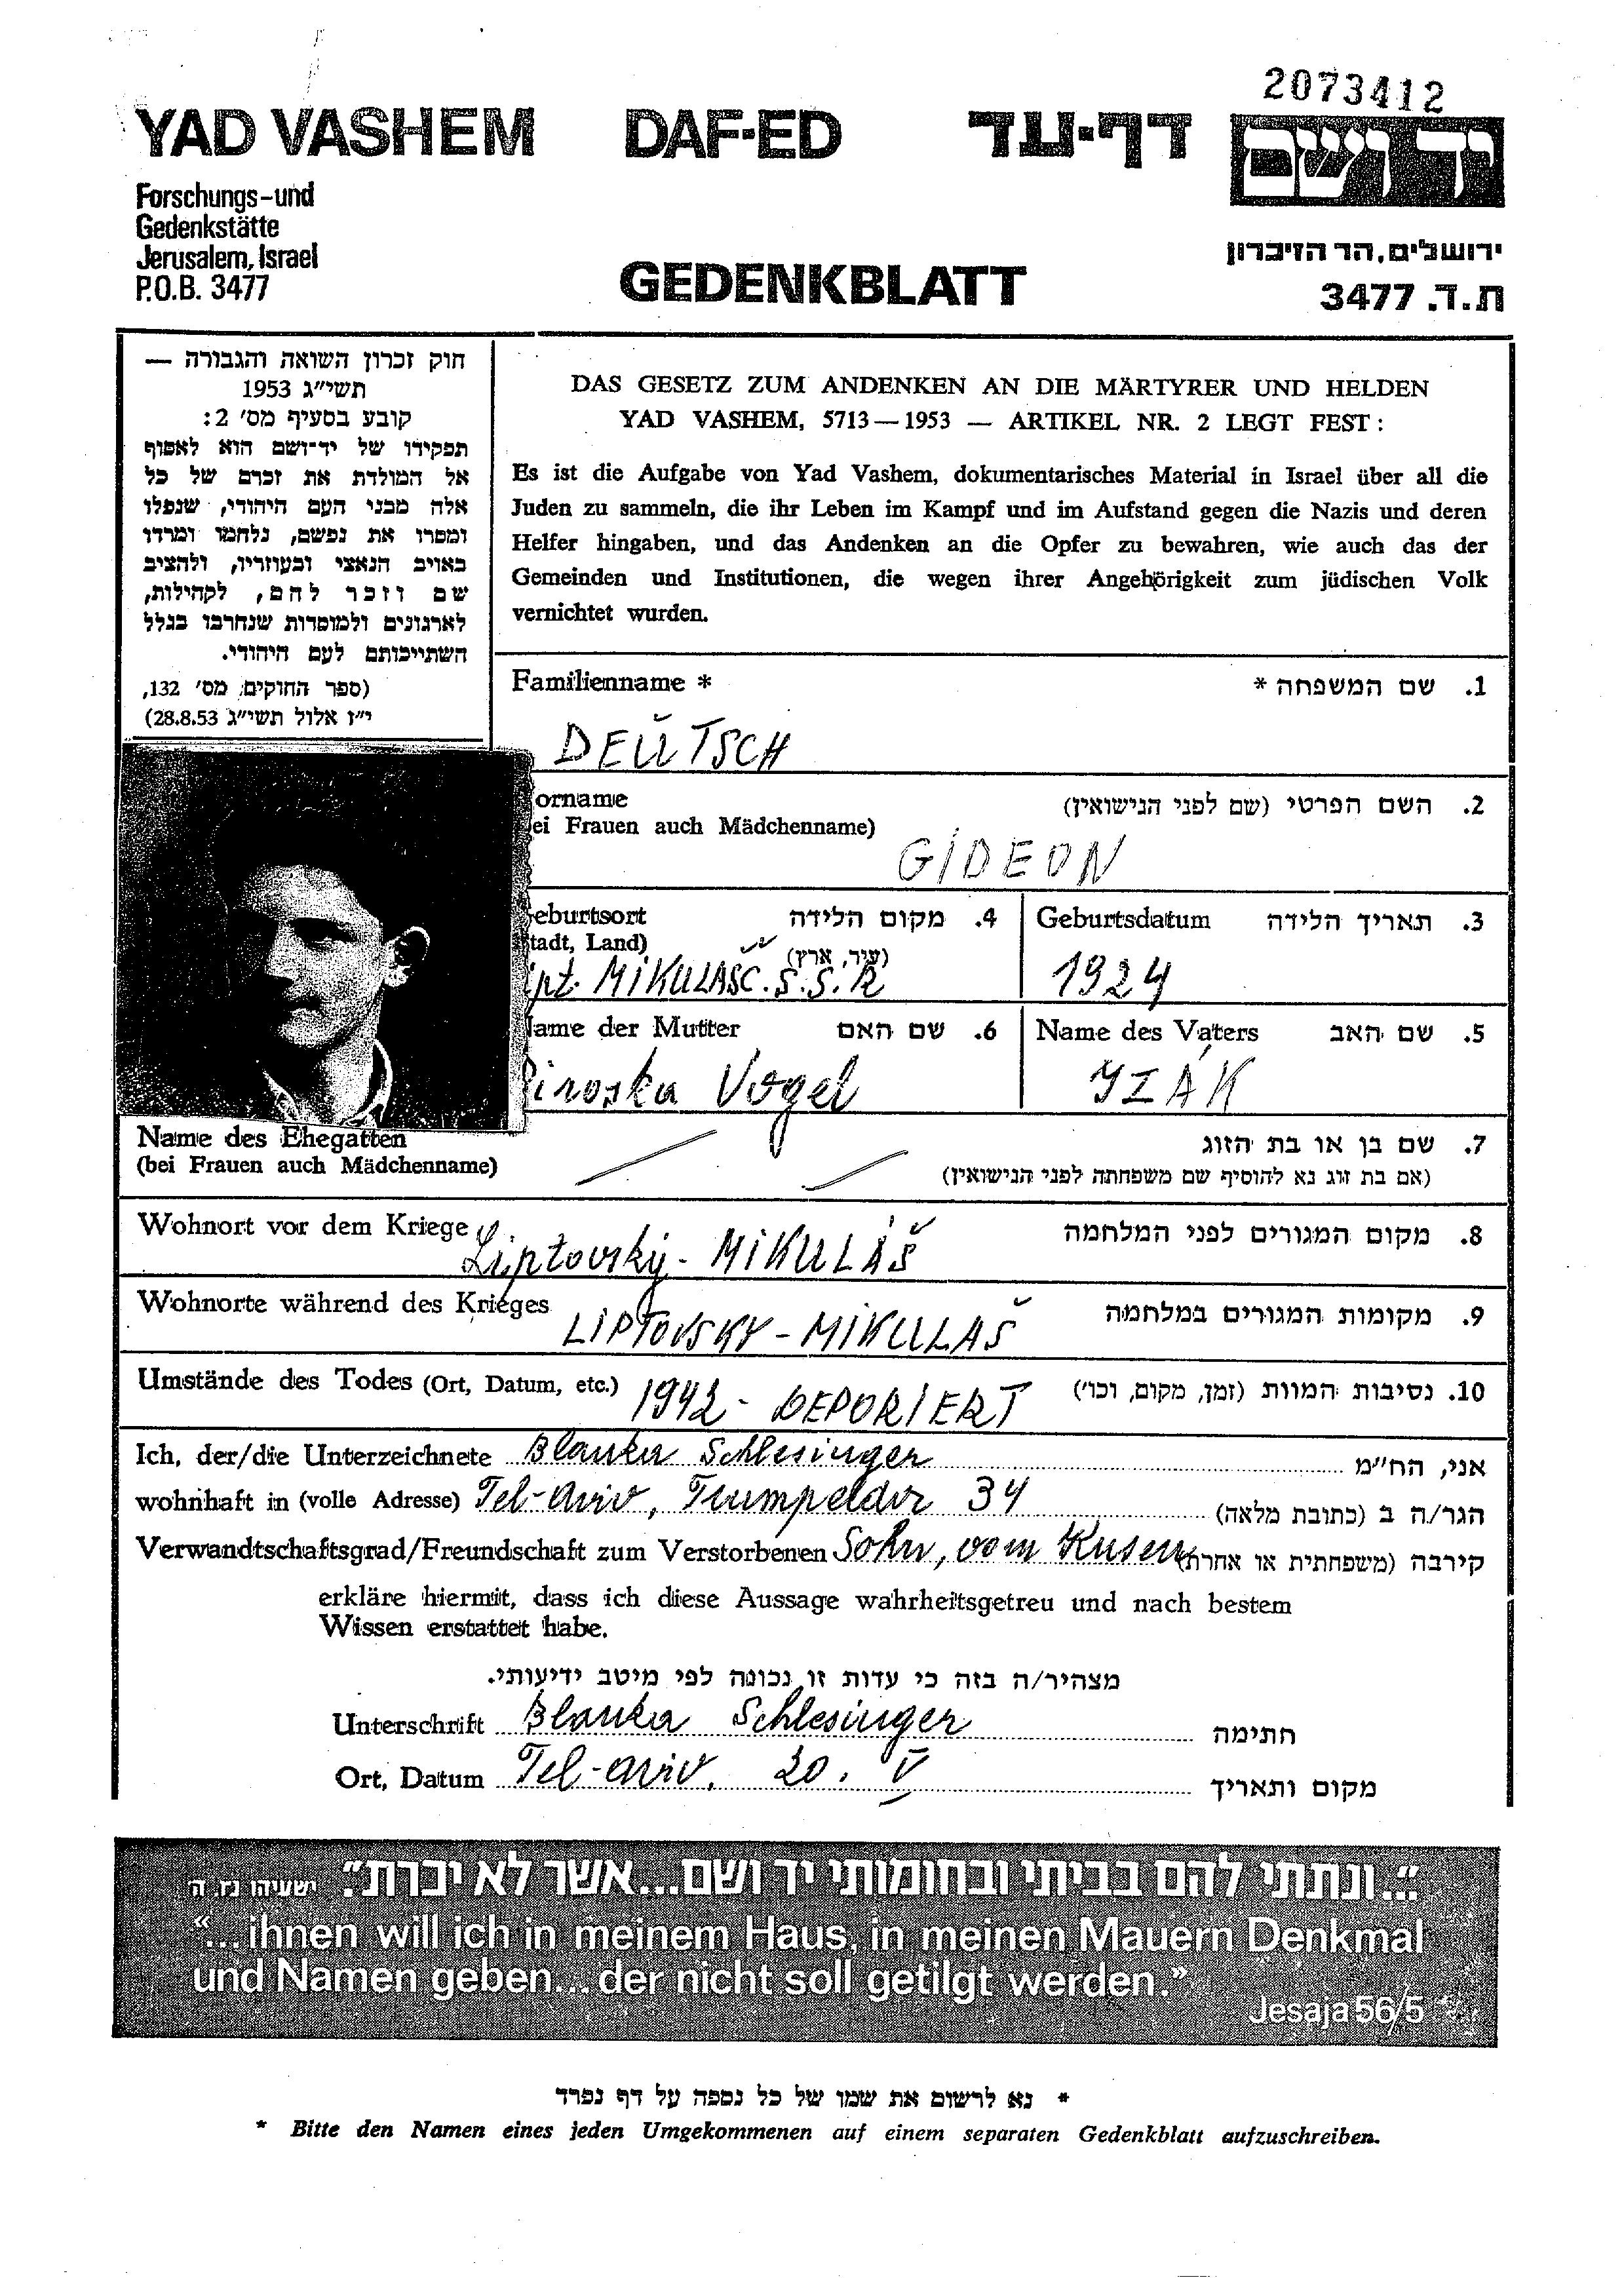 2073412
YAD VASHEM DAF-ED דף-עד
יד ושם
Forschungs-und
Gedenkstätte
Jerusalem, Israel
P.O.B. 3477
GEDENKBLATT
ירושלים, הר הזיכרון
ת.ד. 3477
חוק זכרון השואה והגבורה —
תשי״ג 1953
קובע בסעיף מס׳ 2:
תפקידו של יד־ושם הוא לאסוף
אל המולדת את זכרם של כל
אלה מבני העם היהודי, שנפלו
ומסרו את נפשם, נלחמו ומרדו
באויב הנאצי ובעוזריו, ולהציב
שם וזכר להם, לקהילות,
לארגונים ולמוסדות שנחרבו בגלל
השתייכותם לעם היהודי.
(ספר החוקים, מס׳ 132,
י״ז אלול תשי״ג 28.8.53)
DAS GESETZ ZUM ANDENKEN AN DIE MÄRTYRER UND HELDEN
YAD VASHEM, 5713—1953 — ARTIKEL NR. 2 LEGT FEST:
Es ist die Aufgabe von Yad Vashem, dokumentarisches Material in Israel über all die
Juden zu sammeln, die ihr Leben im Kampf und im Aufstand gegen die Nazis und deren
Helfer hingaben, und das Andenken an die Opfer zu bewahren, wie auch das der
Gemeinden und Institutionen, die wegen ihrer Angehörigkeit zum jüdischen Volk
vernichtet wurden.
Familienname * 1. שם המשפחה *
DEUTSCH
orname 2. השם הפרטי (שם לפני הנישואין)
ei Frauen auch Mädchenname)
GIDEON
eburtsort 4. מקום הלידה
tadt, Land) (עיר, ארץ)
ipt. MIKULAS C.S.S.R
Geburtsdatum 3. תאריך הלידה
1924
ame der Mutter 6. שם האם
Piroska Vogel
Name des Vaters 5. שם האב
IZÁK
Name des Ehegatten 7. שם בן או בת הזוג
(bei Frauen auch Mädchenname) (אם בת זוג נא להוסיף שם משפחתה לפני הנישואין)
Wohnort vor dem Kriege 8. מקום המגורים לפני המלחמה
Liptovský - MIKULÁŠ
Wohnorte während des Krieges 9. מקומות המגורים במלחמה
LIPTOVSKY - MIKULAŠ
Umstände des Todes (Ort, Datum, etc.) 10. נסיבות המוות (זמן, מקום, וכו׳)
1942 - DEPORIERT
Ich, der/die Unterzeichnete Blanka Schlesinger אני, הח״מ
wohnhaft in (volle Adresse) Tel-Aviv, Trumpeldor 34 הגר/ה ב (כתובת מלאה)
Verwandtschaftsgrad/Freundschaft zum Verstorbenen Sohn, vom Kusen קירבה (משפחתית או אחרת)
erkläre hiermit, dass ich diese Aussage wahrheitsgetreu und nach bestem
Wissen erstattet habe.
מצהיר/ה בזה כי עדות זו נכונה לפי מיטב ידיעותי.
Unterschrift Blanka Schlesinger חתימה
Ort, Datum Tel-Aviv, 20. V מקום ותאריך
״...ונתתי להם בביתי ובחומותי יד ושם...אשר לא יכרת״. ישעיהו נז, ה
“...ihnen will ich in meinem Haus, in meinen Mauern Denkmal
und Namen geben... der nicht soll getilgt werden.”
Jesaja 56/5
* נא לרשום את שמו של כל נספה על דף נפרד
* Bitte den Namen eines jeden Umgekommenen auf einem separaten Gedenkblatt aufzuschreiben.